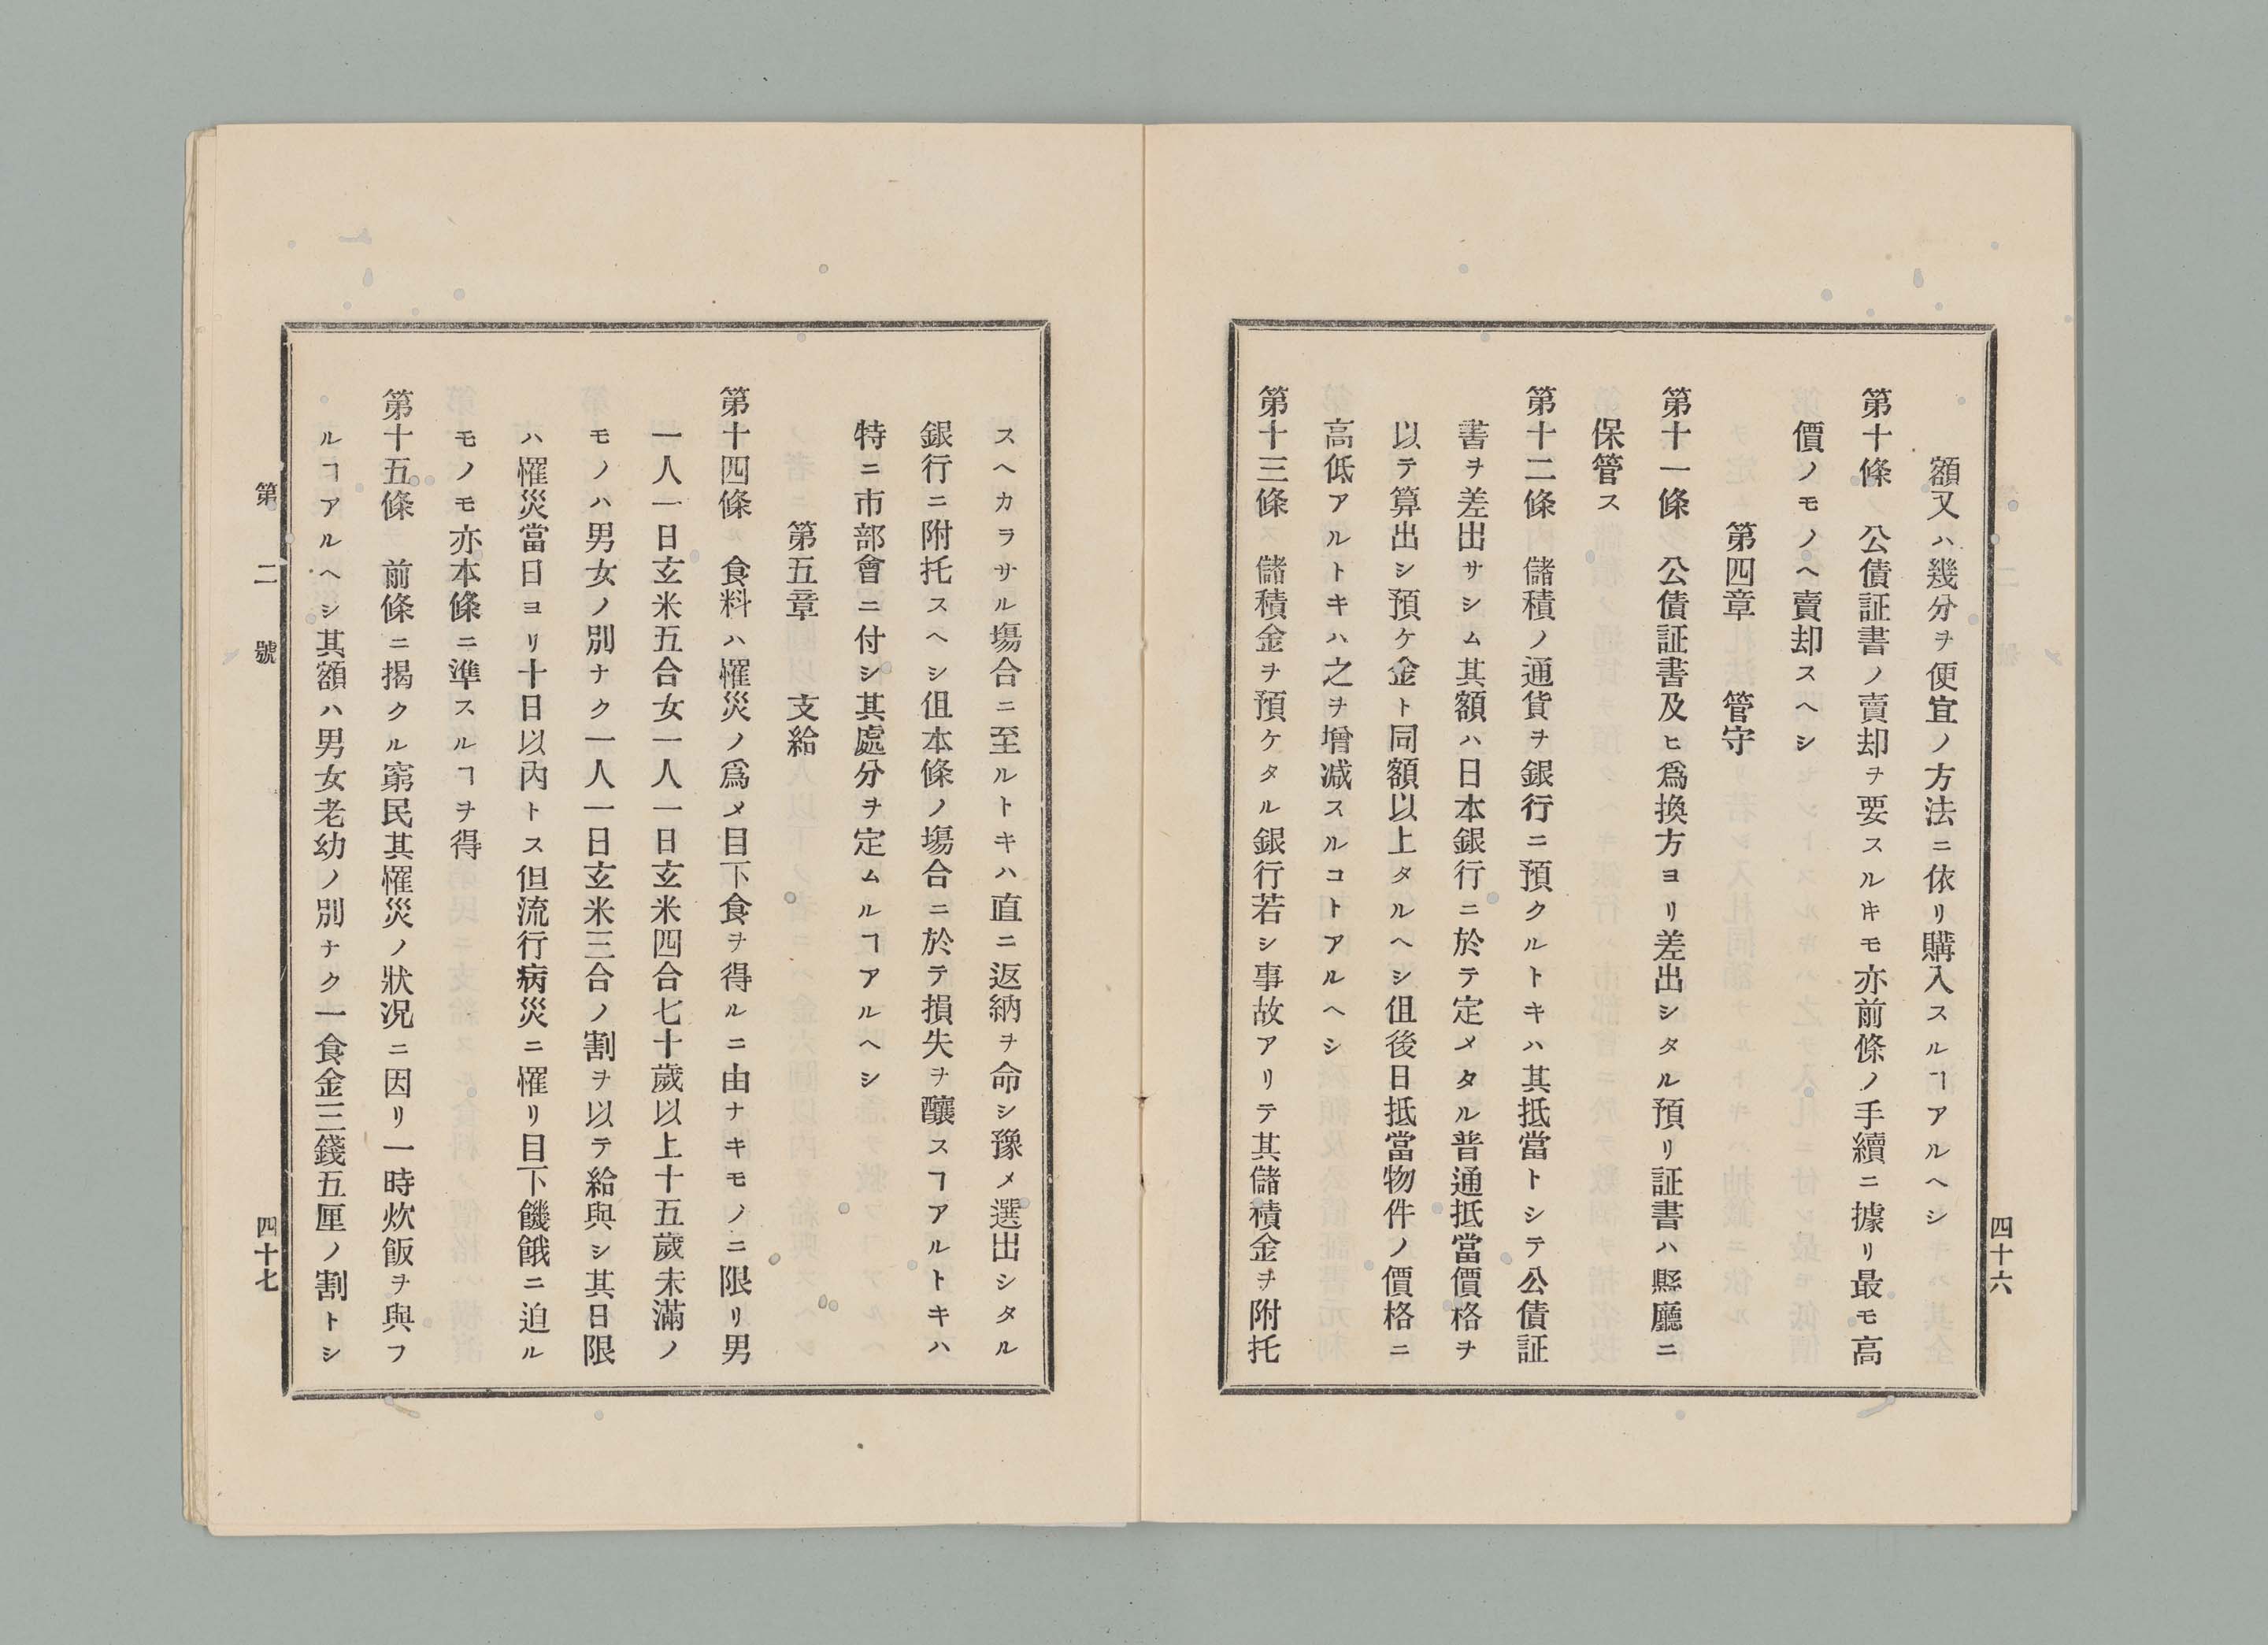 額又ハ幾分ヲ便宜ノ方法ニ依リ購入スルヿアルヘシ
第十條　公債証書ノ賣却ヲ要スルキモ亦前條ノ手續ニ據リ最モ高
價ノモノヘ賣却スヘシ
第四章　　管守
第十一條　公債証書及ヒ爲換方ヨリ差出シタル預リ証書ハ縣廳ニ
保管ス
第十二條　儲積ノ通貨ヲ銀行ニ預クルトキハ其抵當トシテ公債証
書ヲ差出サシム其額ハ日本銀行ニ於テ定メタル普通抵當價格ヲ
以テ算出シ預ケ金ト同額以上タルヘシ伹後日抵當物件ノ價格ニ
高低アルトキハ之ヲ增减スルコトアルヘシ
第十三條　儲積金ヲ預ケタル銀行若シ事故アリテ其儲積金ヲ附托
四十六
スヘカラサル塲合ニ至ルトキハ直ニ返納ヲ命シ豫メ選出シタル
銀行ニ附托スヘシ伹本條ノ塲合ニ於テ損失ヲ釀スヿアルトキハ
特ニ市部會ニ付シ其處分ヲ定ムルヿアルヘシ
第五章　　支給
第十四條　食料ハ罹災ノ爲メ目下食ヲ得ルニ由ナキモノニ限リ男
一人一日玄米五合女一人一日玄米四合七十歲以上十五歲未滿ノ
モノハ男女ノ別ナク一人一日玄米三合ノ割ヲ以テ給與シ其日限
ハ罹災當日ヨリ十日以內トス但流行病災ニ罹リ目下饑餓ニ迫ル
モノモ亦本條ニ準スルヿヲ得
第十五條　前條ニ揭クル窮民其罹災ノ狀況ニ因リ一時炊飯ヲ與フ
ルヿアルヘシ其額ハ男女老幼ノ別ナク一食金三錢五厘ノ割トシ
第二號
四十七